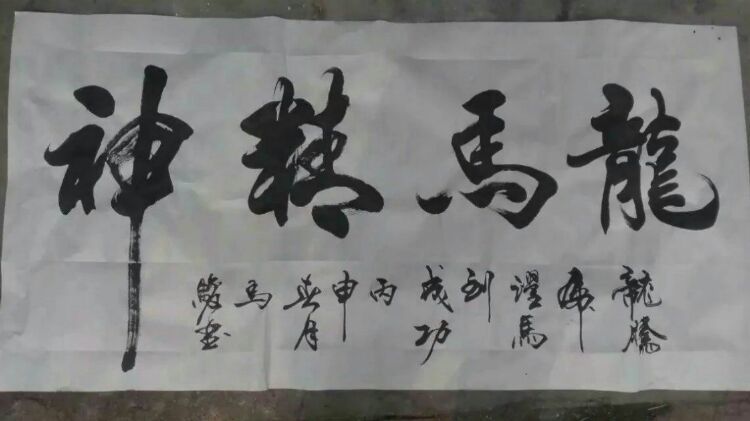 龍馬精神
龍騰
虎
躍馬
到
成功
丙
申
春月
馬
駿書